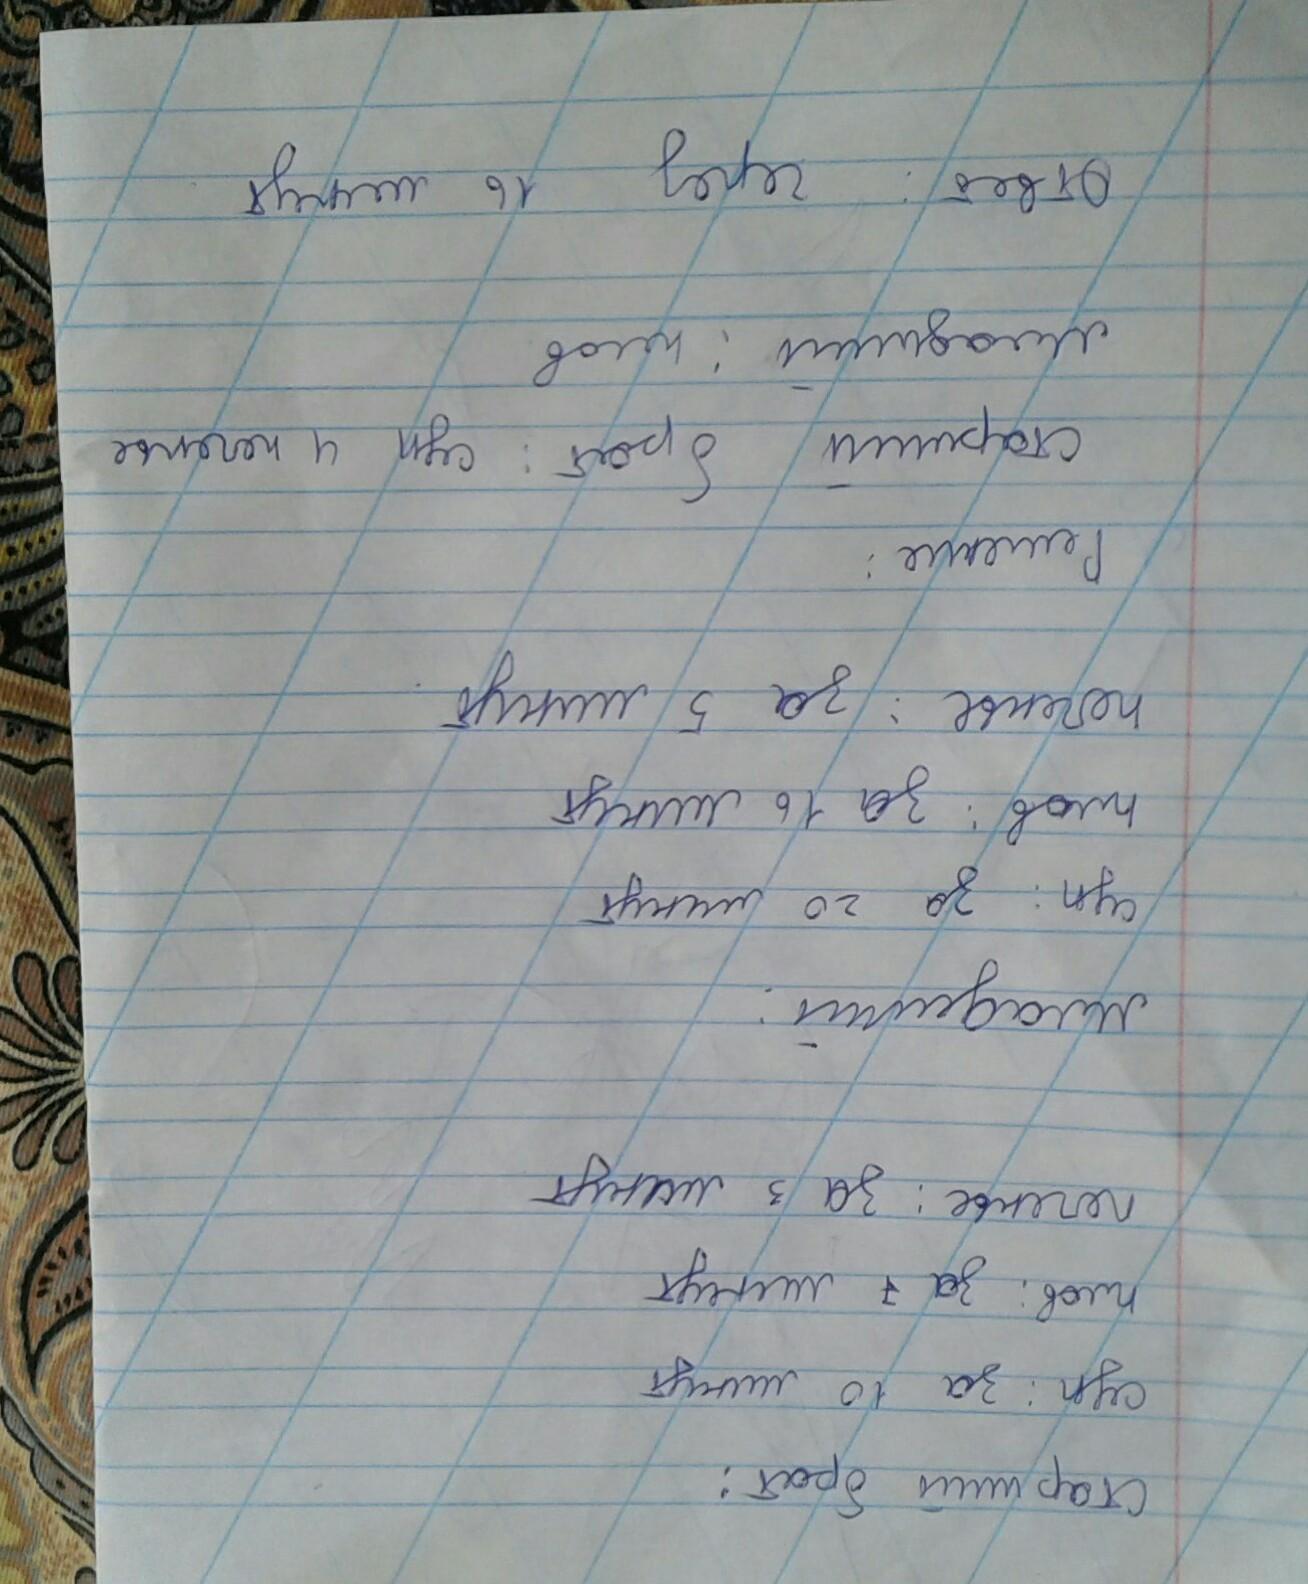 старший брат:
суп: за 10 минут
плов: за 7 минут
печенье: за 3 минут
младший:
суп: за 20 минут
плов: за 16 минут
печенье: за 5 минут
Решение:
старший брат: суп и печенье
младший: плов
Ответ: через 16 минут